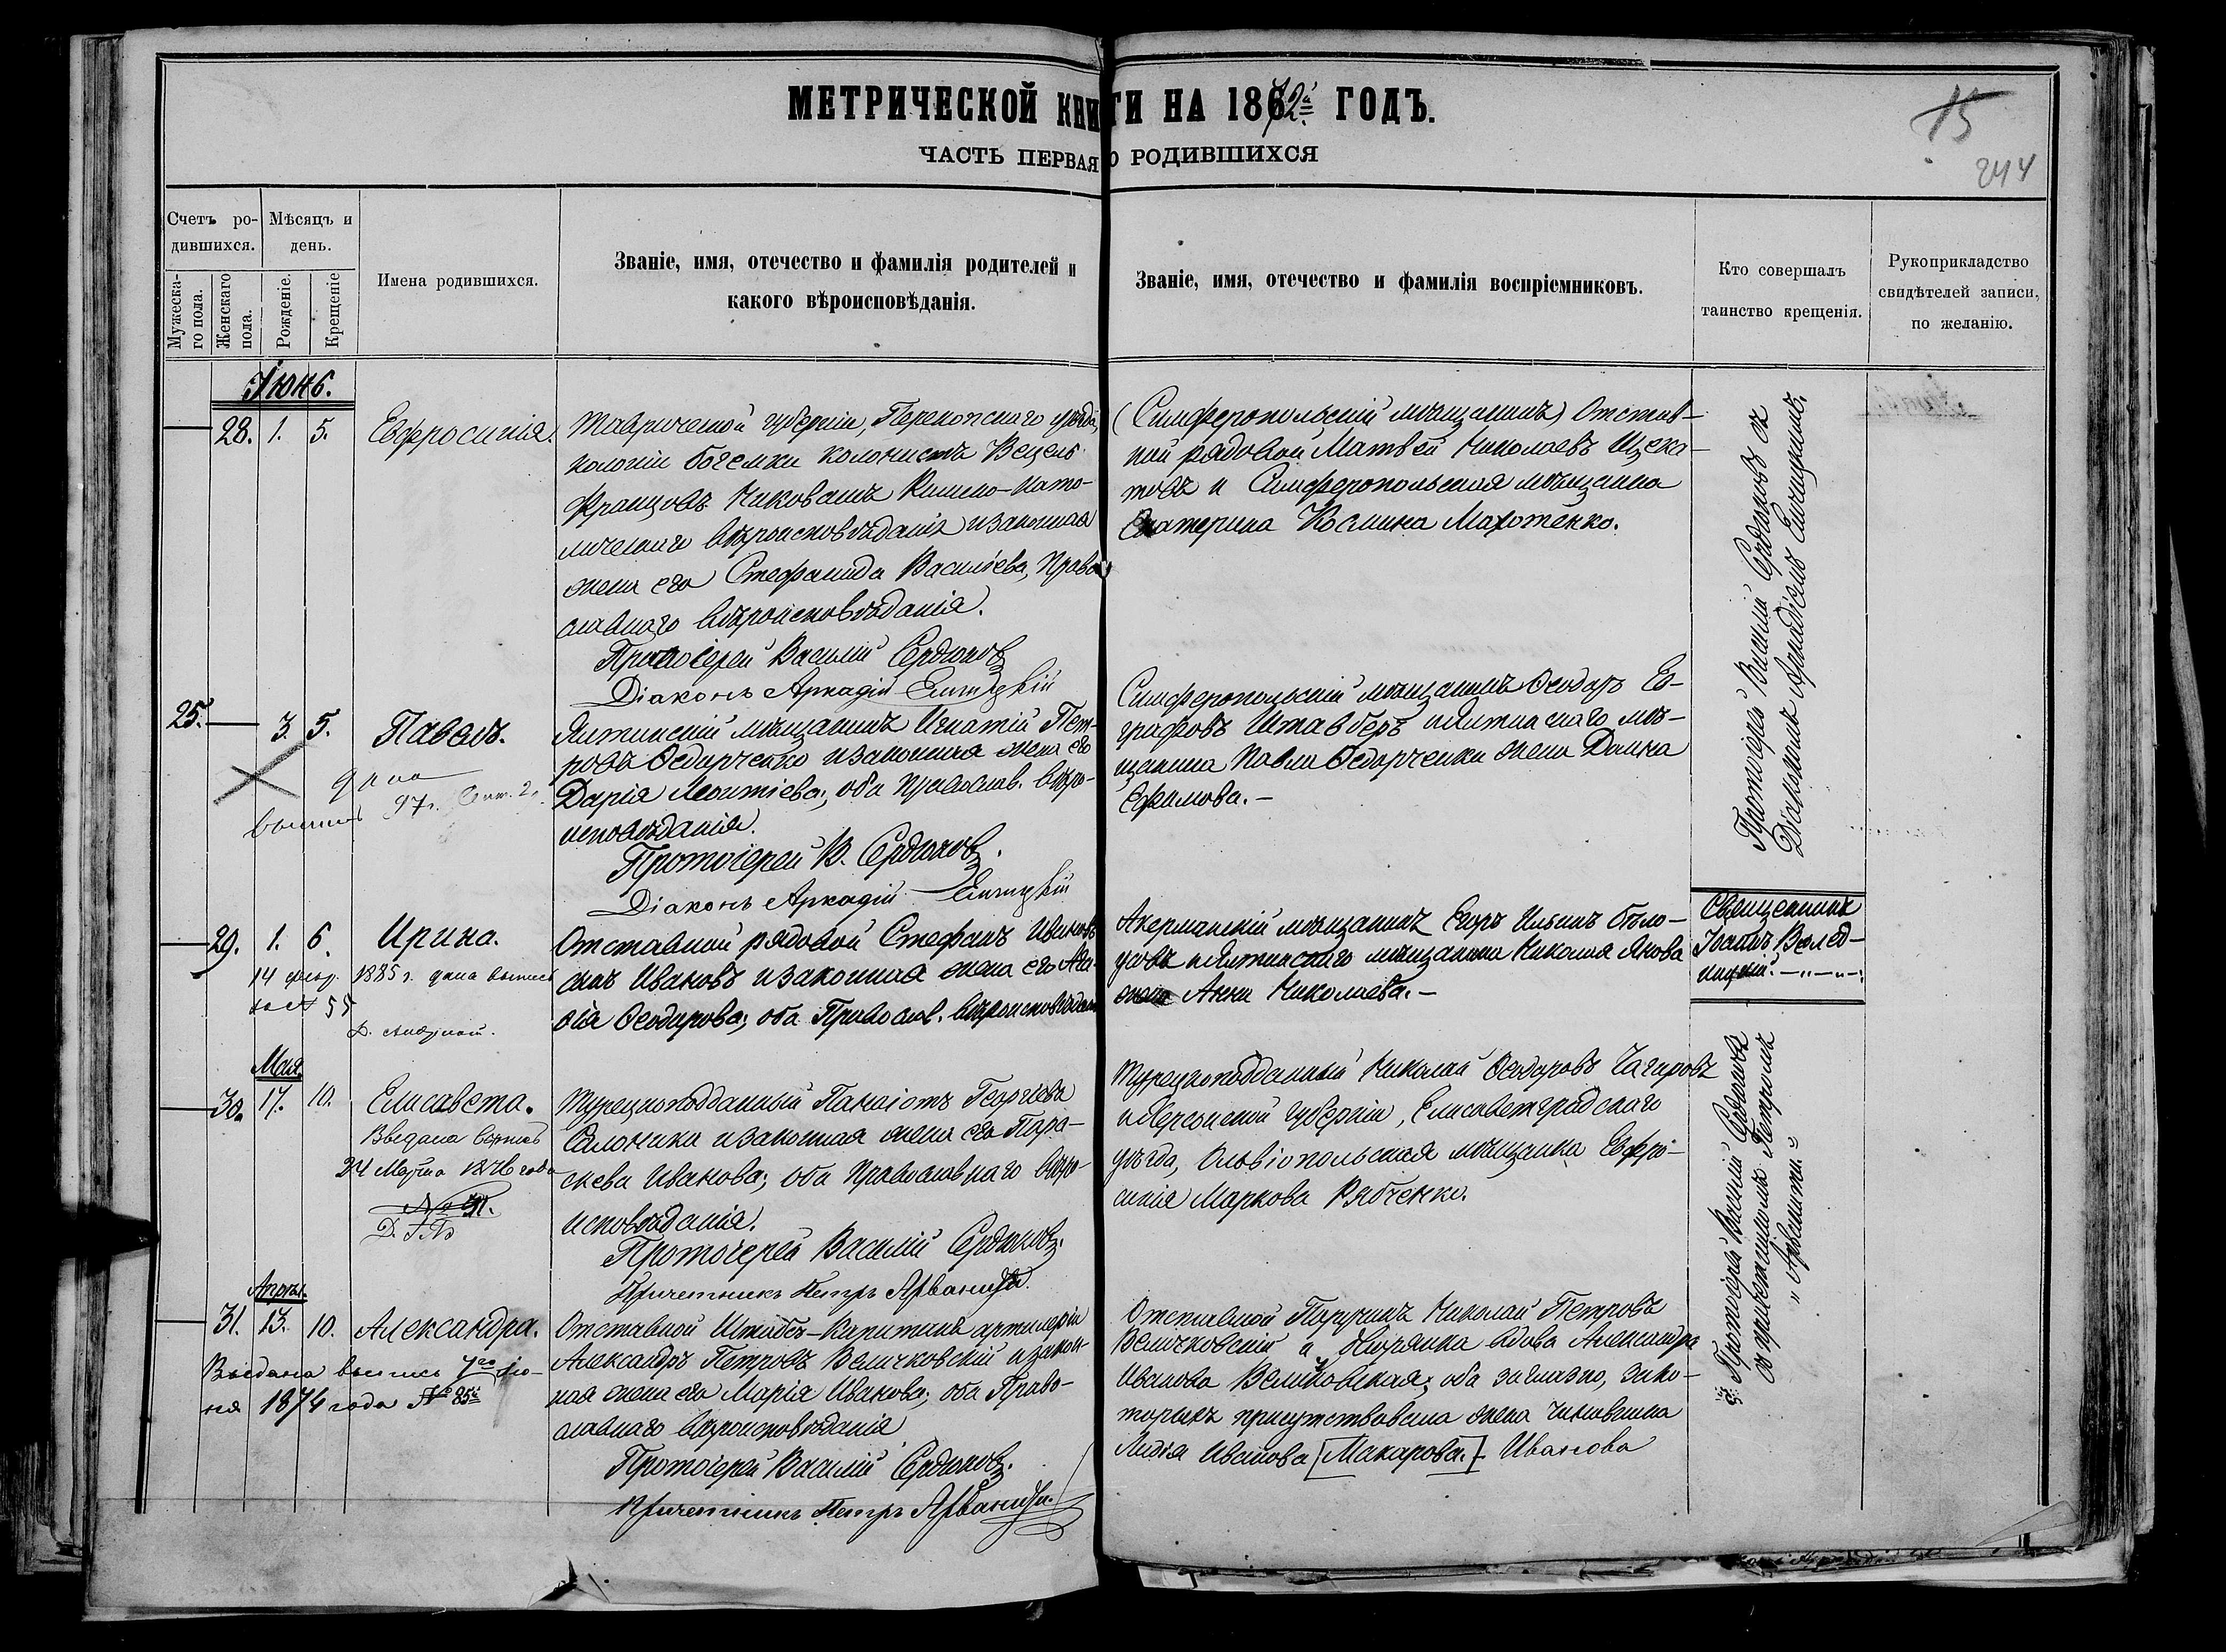 МЕТРИЧЕСКОЙ КНИГИ НА 1872й ГОДЪ.
ЧАСТЬ ПЕРВАЯ О РОДИВШИХСЯ
15
244
Счетъ ро-
дившихся.
Мужеска-
го пола.
Женскаго
пола.
Мѣсяцъ и
день.
Рожденіе.
Крещеніе
Имена родившихся.
Званіе, имя, отечество и фамилія родителей и
какого вѣроисповѣданія.
Званіе, имя, отечество и фамилія воспріемниковъ.
Кто совершалъ
таинство крещенія.
Рукоприкладство
свидѣтелей записи,
по желанію.
Іюнь.
28. 1. 5. Евфросинія.
Таврической губерніи, Перекопскаго уѣзда,
колоніи Богемки колонистъ Вецель
Францовъ Чиковашъ Римско-като-
лическаго вѣроисповѣданія и законная
жена его Стефанида Васильева, Право
славнаго вѣроисповѣданія.
Протоіерей Василій Сердюковъ
Діаконъ Аркадій
(Симферопольскій мѣщанинъ) Отстав-
ной рядовой Матвей Николаевъ Щека-
товъ и Симферопольская мѣщанка
Екатерина Космина Махотенко.
25. 3. 5. Павелъ.
97г. 2.
Ялтинскій мѣщанинъ Игнатій Пет-
ровъ Ѳедорченко и законная жена его
Дарія Леонтіева; оба православ. вѣро-
исповѣданія.
Протоіерей В. Сердюковъ.
Діаконъ Аркадій
Симферопольскій мѣщанинъ Ѳеодоръ Ев-
графовъ и Ялтинскаго мѣ-
щанина Павла Ѳедорченки жена Домна
Ефимова.-
Протоіерей Василій Сердюковъ съ
Діакономъ Аркадіемъ
29. 1. 6. Ирина.
14 февр. 1885 г. дана выпись
за № 55
Д.
Отставной рядовой Стефанъ Ивановъ
Ивановъ и законная жена его Ага-
ѳія Ѳеодорова; оба Православ. вѣроисповѣдан
Акерманскій мѣщанинъ Егоръ Ильинъ Бѣло-
усовъ и Ялтинскаго мѣщанина Николая Янова
жена Анна Николаева.-
Священникъ
Іоаннъ
Мая.
30. 17. 10. Елисавета.
Выдана выпись
24 Марта 1876 года
№ 31.
Турецкоподданный Панаіотъ Георгіевъ
Салоники и законная жена его Пара-
скева Иванова; оба православнаго вѣро-
исповѣданія.
Протоіерей Василій Сердюковъ.
Причетникъ Петръ Арваниди.
Турецкоподданный Николай Ѳеодоровъ Чагировъ
и Херсонской губерніи, Елисаветградскаго
уѣзда, Ольвіопольская мѣщанка Евфро-
синія Маркова Рябченко.
Протоіерей Василій Сердюковъ
съ Петромъ
Апрѣл.
31. 13. 10. Александра.
Выдана выпись 7го Ію-
ня 1874 года № 85й
Отставной Штабсъ-Капитанъ артилеріи
Александръ Петровъ Величковскій и закон-
ная жена его Марія Иванова; оба Право-
славнаго вѣроисповѣданія
Протоіерей Василій Сердюковъ.
Причетникъ Петръ Арваниди.
Отставной Поручикъ Николай Петровъ
Величковскій и Дворянка вдова Александра
Иванова Величковская; оба заглазно, за ко-
торыхъ присутствовала жена чиновника
Лидія Иванова [Макарова.]- Иванова